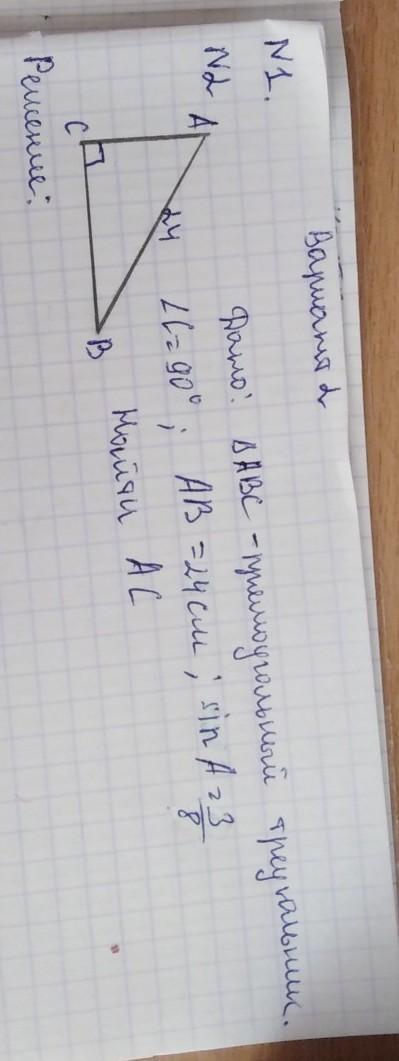 Вариант 2
N1.
Дано: ΔABC - прямоугольный треугольник.
N2
∠C = 90°; AB = 24 см; sin A = 3/8
A
24
C
B
Найти AC
Решение: